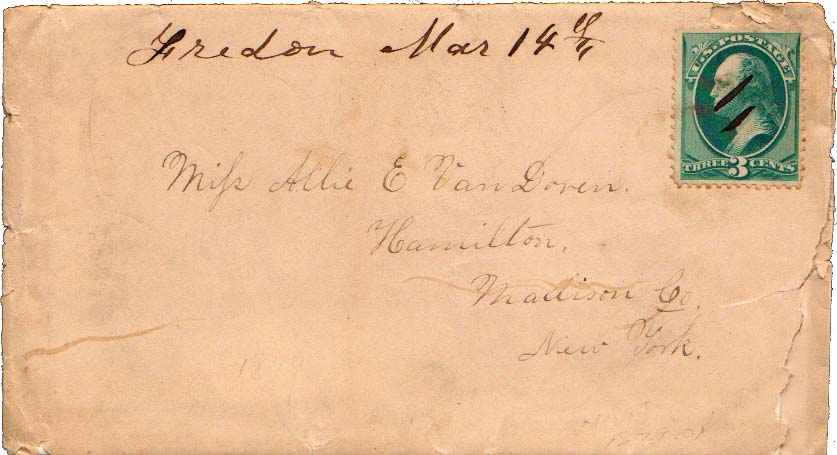 Fredon Mar 14th
U.S. POSTAGE
THREE 3 CENTS
Miſs Allie E VanDoren.
Hamilton,
Madison Co.
New York.
18